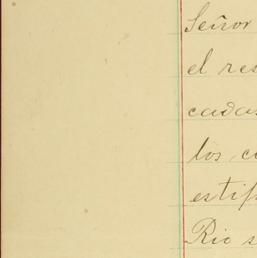 Señor
el res
cadas
los, c
estip
Rio s